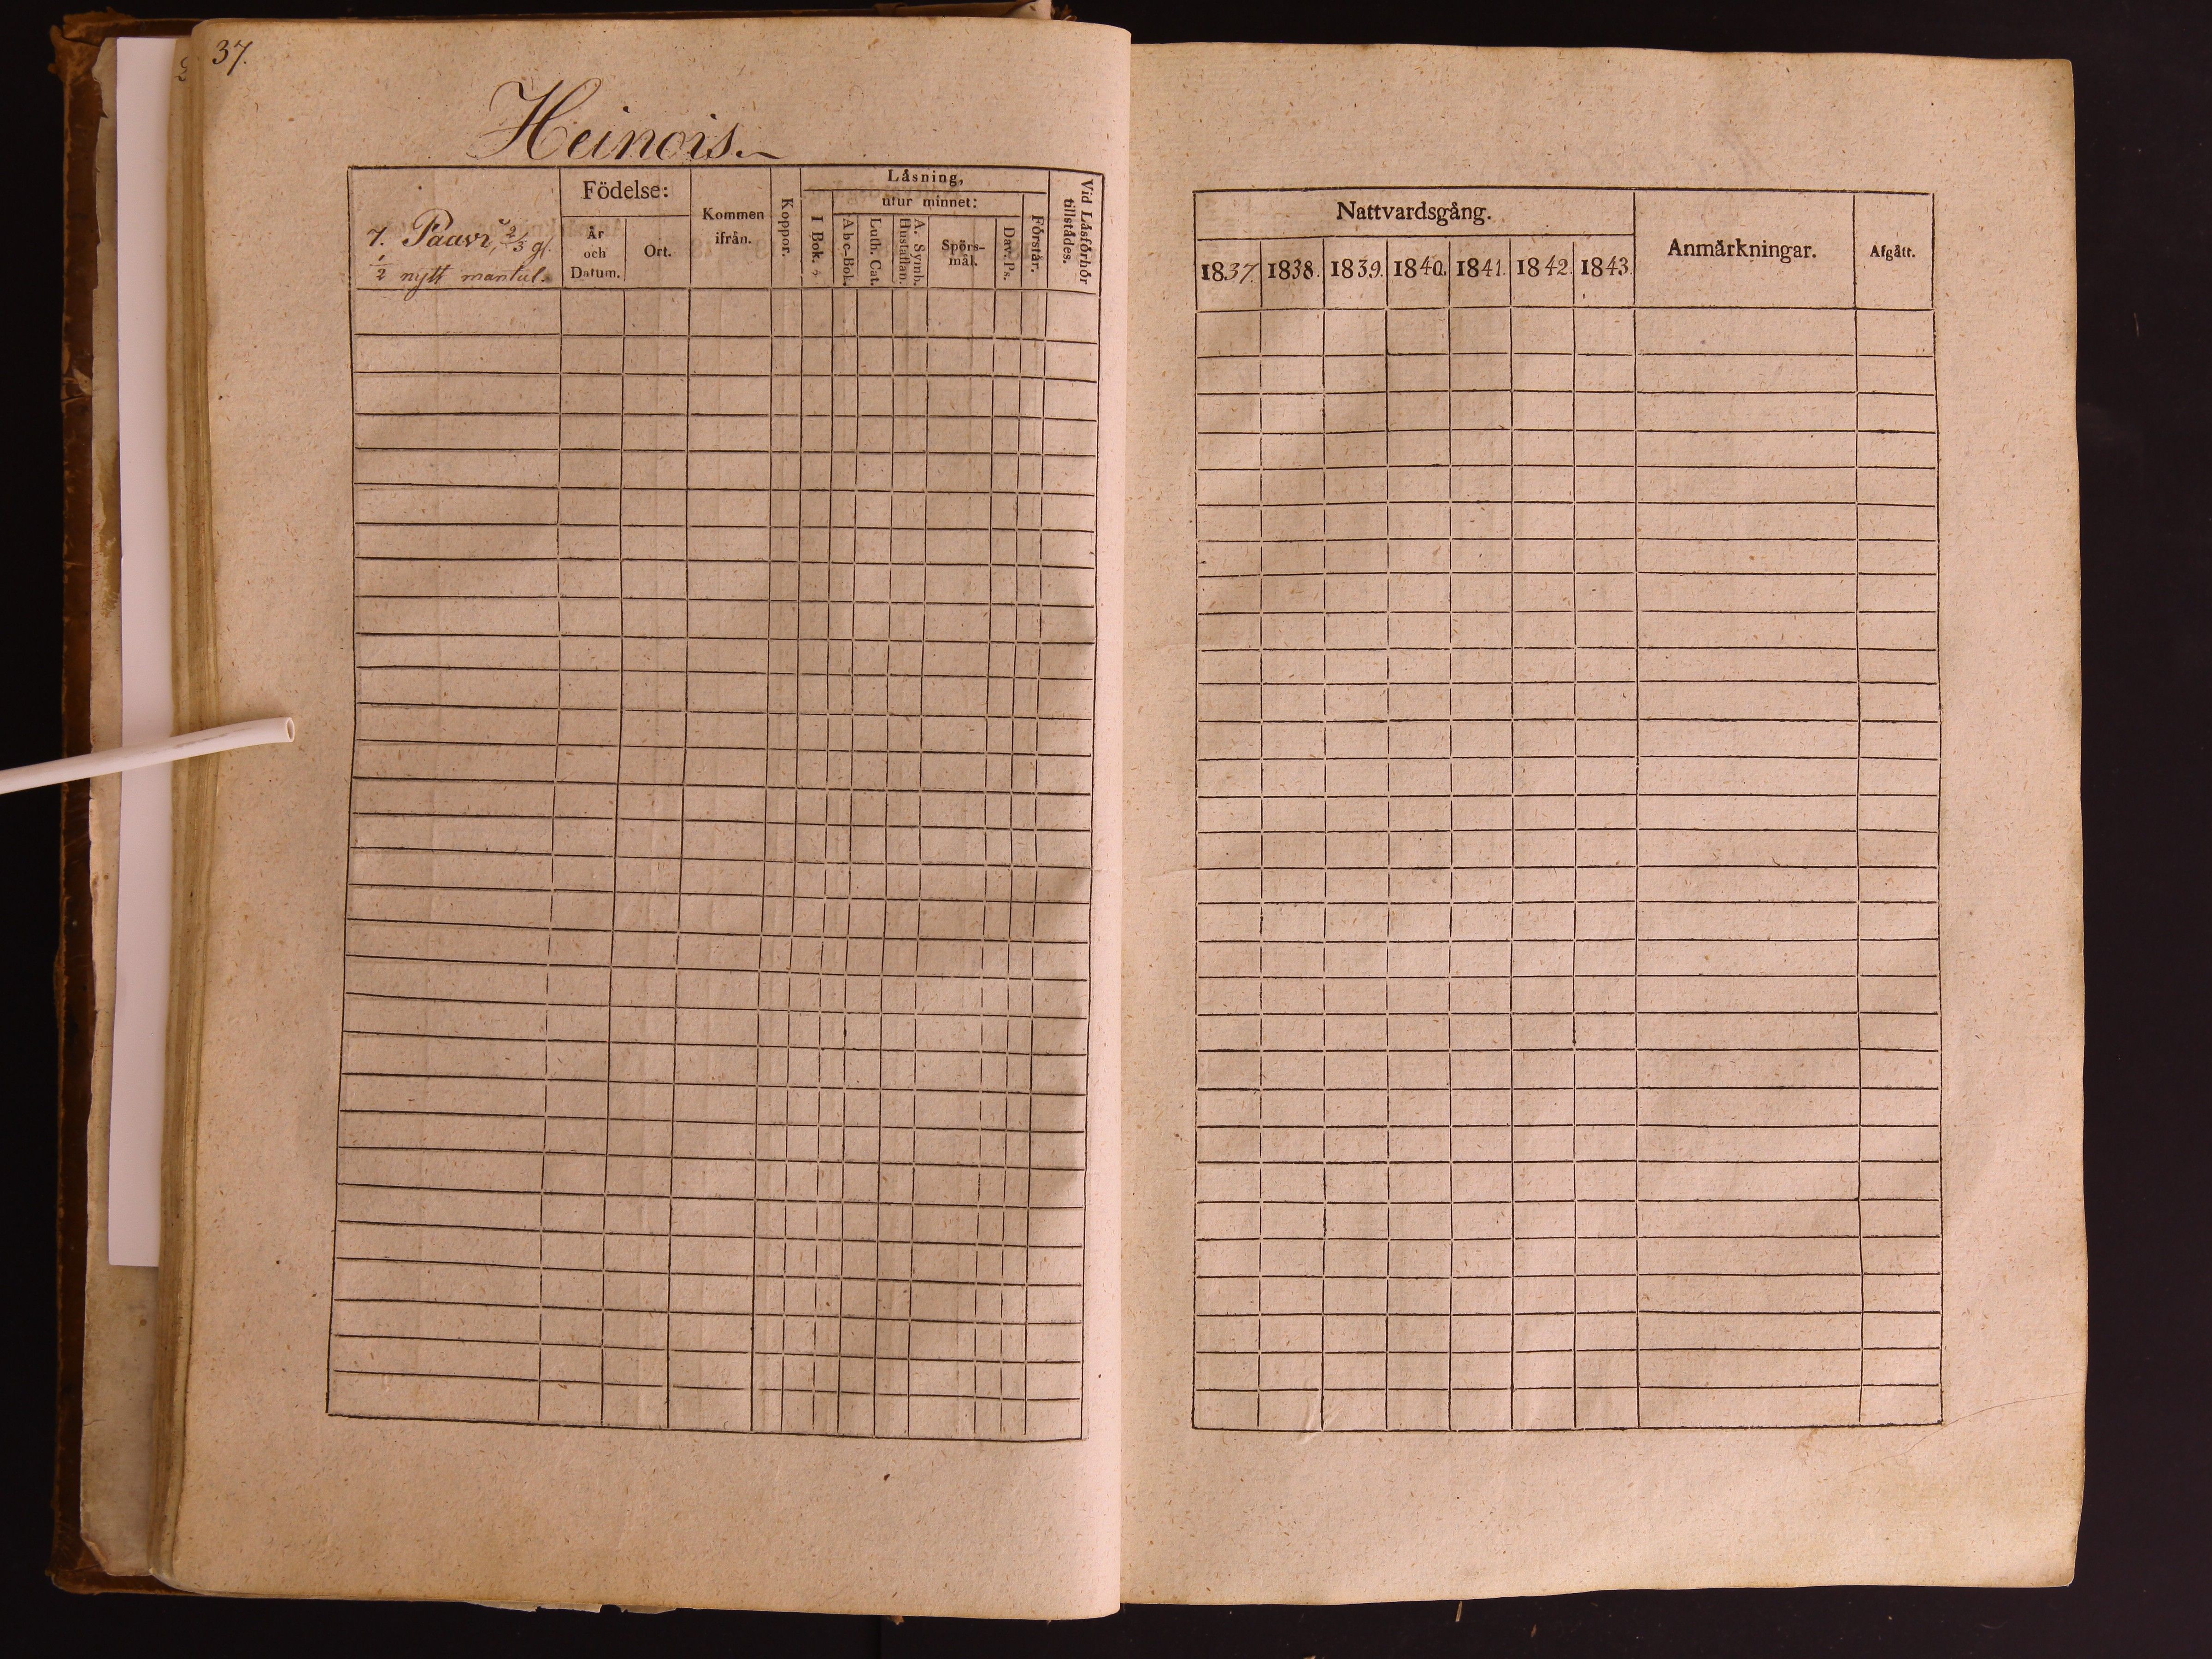 37.
Heinois.
7. Paavi, 2/3 gl.
1/2 nytt mantal.
Födelse:
År
och
Datum.
Ort.
Kommen
ifrån.
Koppor.
Läsning,
I Bok.
utur minnet:
Abc-Bok.
Luth. Cat.
A. Symb.
Hustaflan.
Spörs-
mål.
Dav. Ps.
Förstår.
Vid Läsförhör
tillstädes.
Nattvardsgång.
1837. 1838. 1839. 1840. 1841. 1842. 1843.
Anmärkningar.
Afgått.